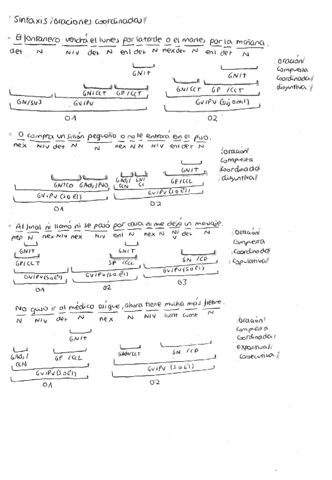 Sintaxis (oraciones coordinadas)
El fontanero vendrá el lunes por la tarde o el martes por la mañana.
det N N/V det N enl det N nex det N enl det N
GN/T GN/T
GN/CCT GP/CCT GN/CCT GP/CCT
GN/SUJ GV/PV GV/PV (suj omi)
O1 O2
(oración)
compuesta
coordinada
disyuntiva
O compra un sillón pequeño o no le entrará en el piso.
nex N/V det N N nex N N N/V enl det N
GN/T
GN/CD GAdj/ GP/CCL
GV/PV (SO él) GV/PV (SO él)
O1 O2
(oración)
compuesta
coordinada
disyuntiva
Al final ni llamó ni se pasó por casa ni me dejó un mensaje.
GN/T GN/T
GP/CCT SP/CCL GN/CD
GV/PV (SO él) GV/PV (SO él) GV/PV (SO él)
O1 O2 O3
(oración)
compuesta
coordinada
copulativa
No quiso ir al médico así que, ahora tiene mucha más fiebre.
N N/V det N nex N N/V cunt cunt N
GN/T
GAdv/ GP/CCL GAdv/CCT GN/CD
CCN
GV/PV (SO él) GV/PV (SO él)
O1 O2
(oración)
compuesta
coordinada
consecutiva